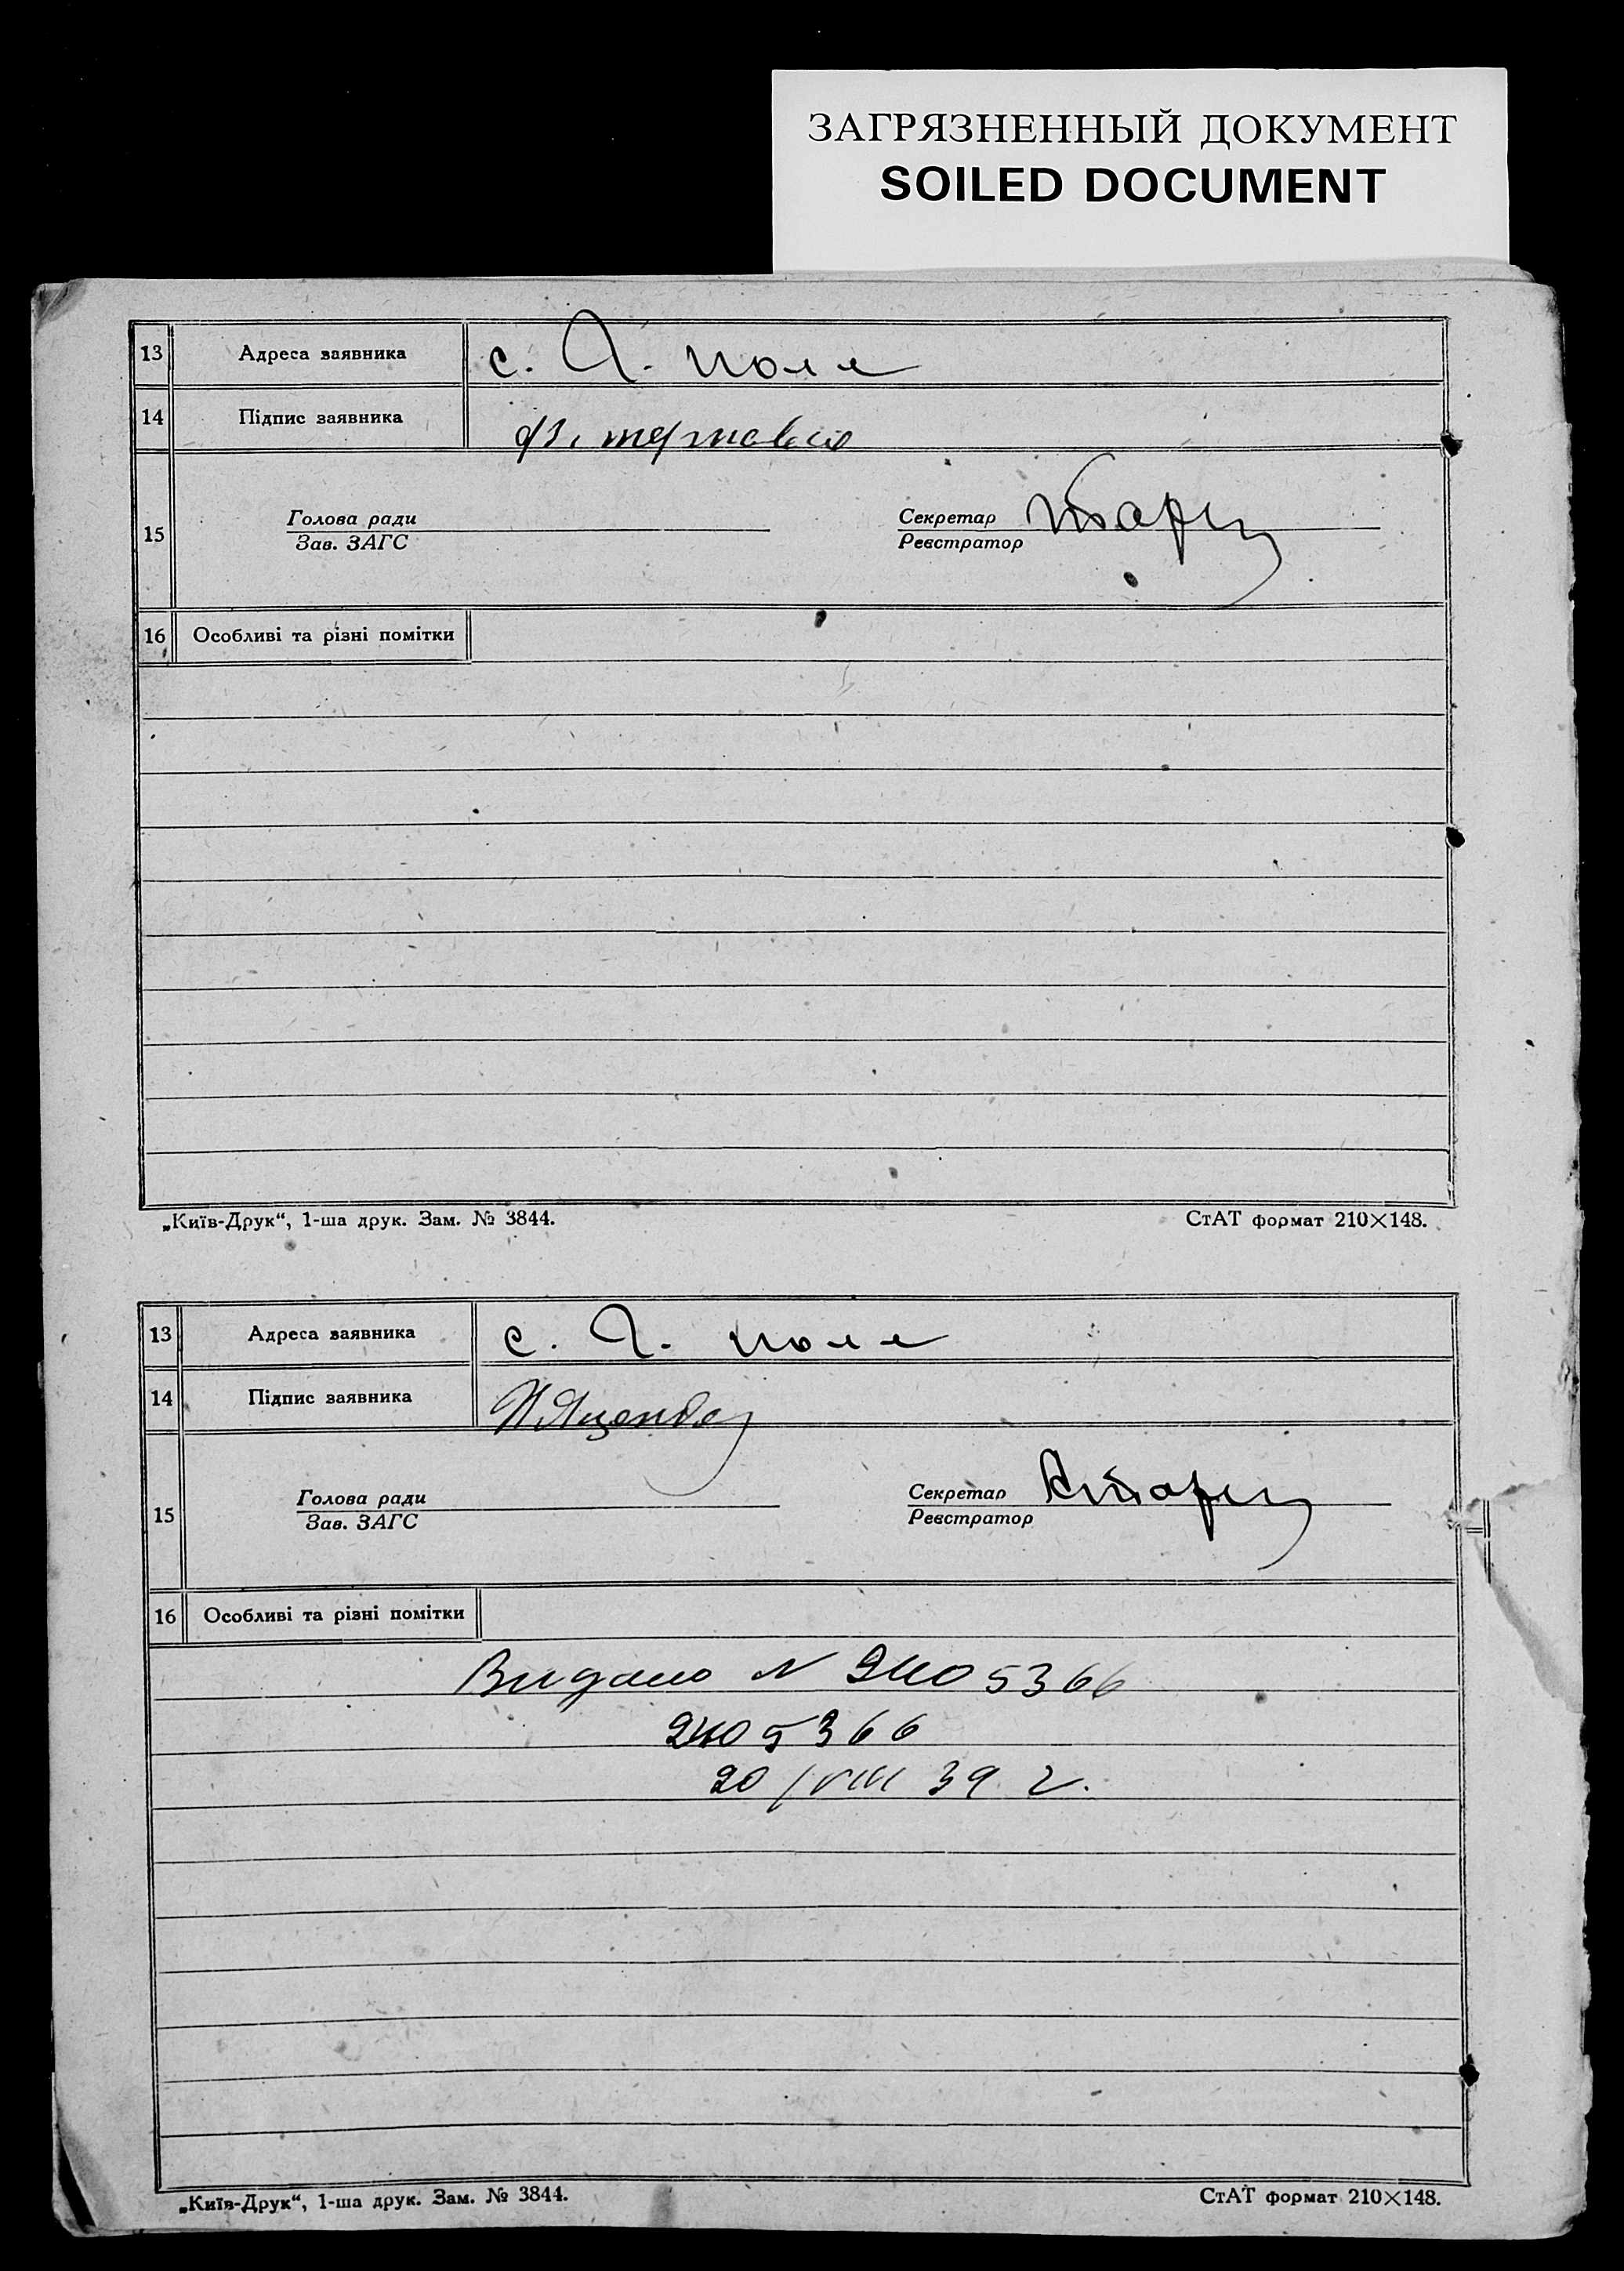 ЗАГРЯЗНЕННЫЙ ДОКУМЕНТ
SOILED DOCUMENT
13 Адреса заявника с. Г. поле
14 Підпис заявника
15 Голова ради Секретар
Зав. ЗАГС Реєстратор
16 Особливі та різні помітки
„Київ-Друк“, 1-ша друк. Зам. № 3844. СтАТ формат 210×148.
13 Адреса заявника с. Г. поле
14 Підпис заявника
15 Голова ради Секретар
Зав. ЗАГС Реєстратор
16 Особливі та різні помітки
Видано N 2405366
2405366
20/VIII 39 г.
„Київ-Друк“, 1-ша друк. Зам. № 3844. СтАТ формат 210×148.